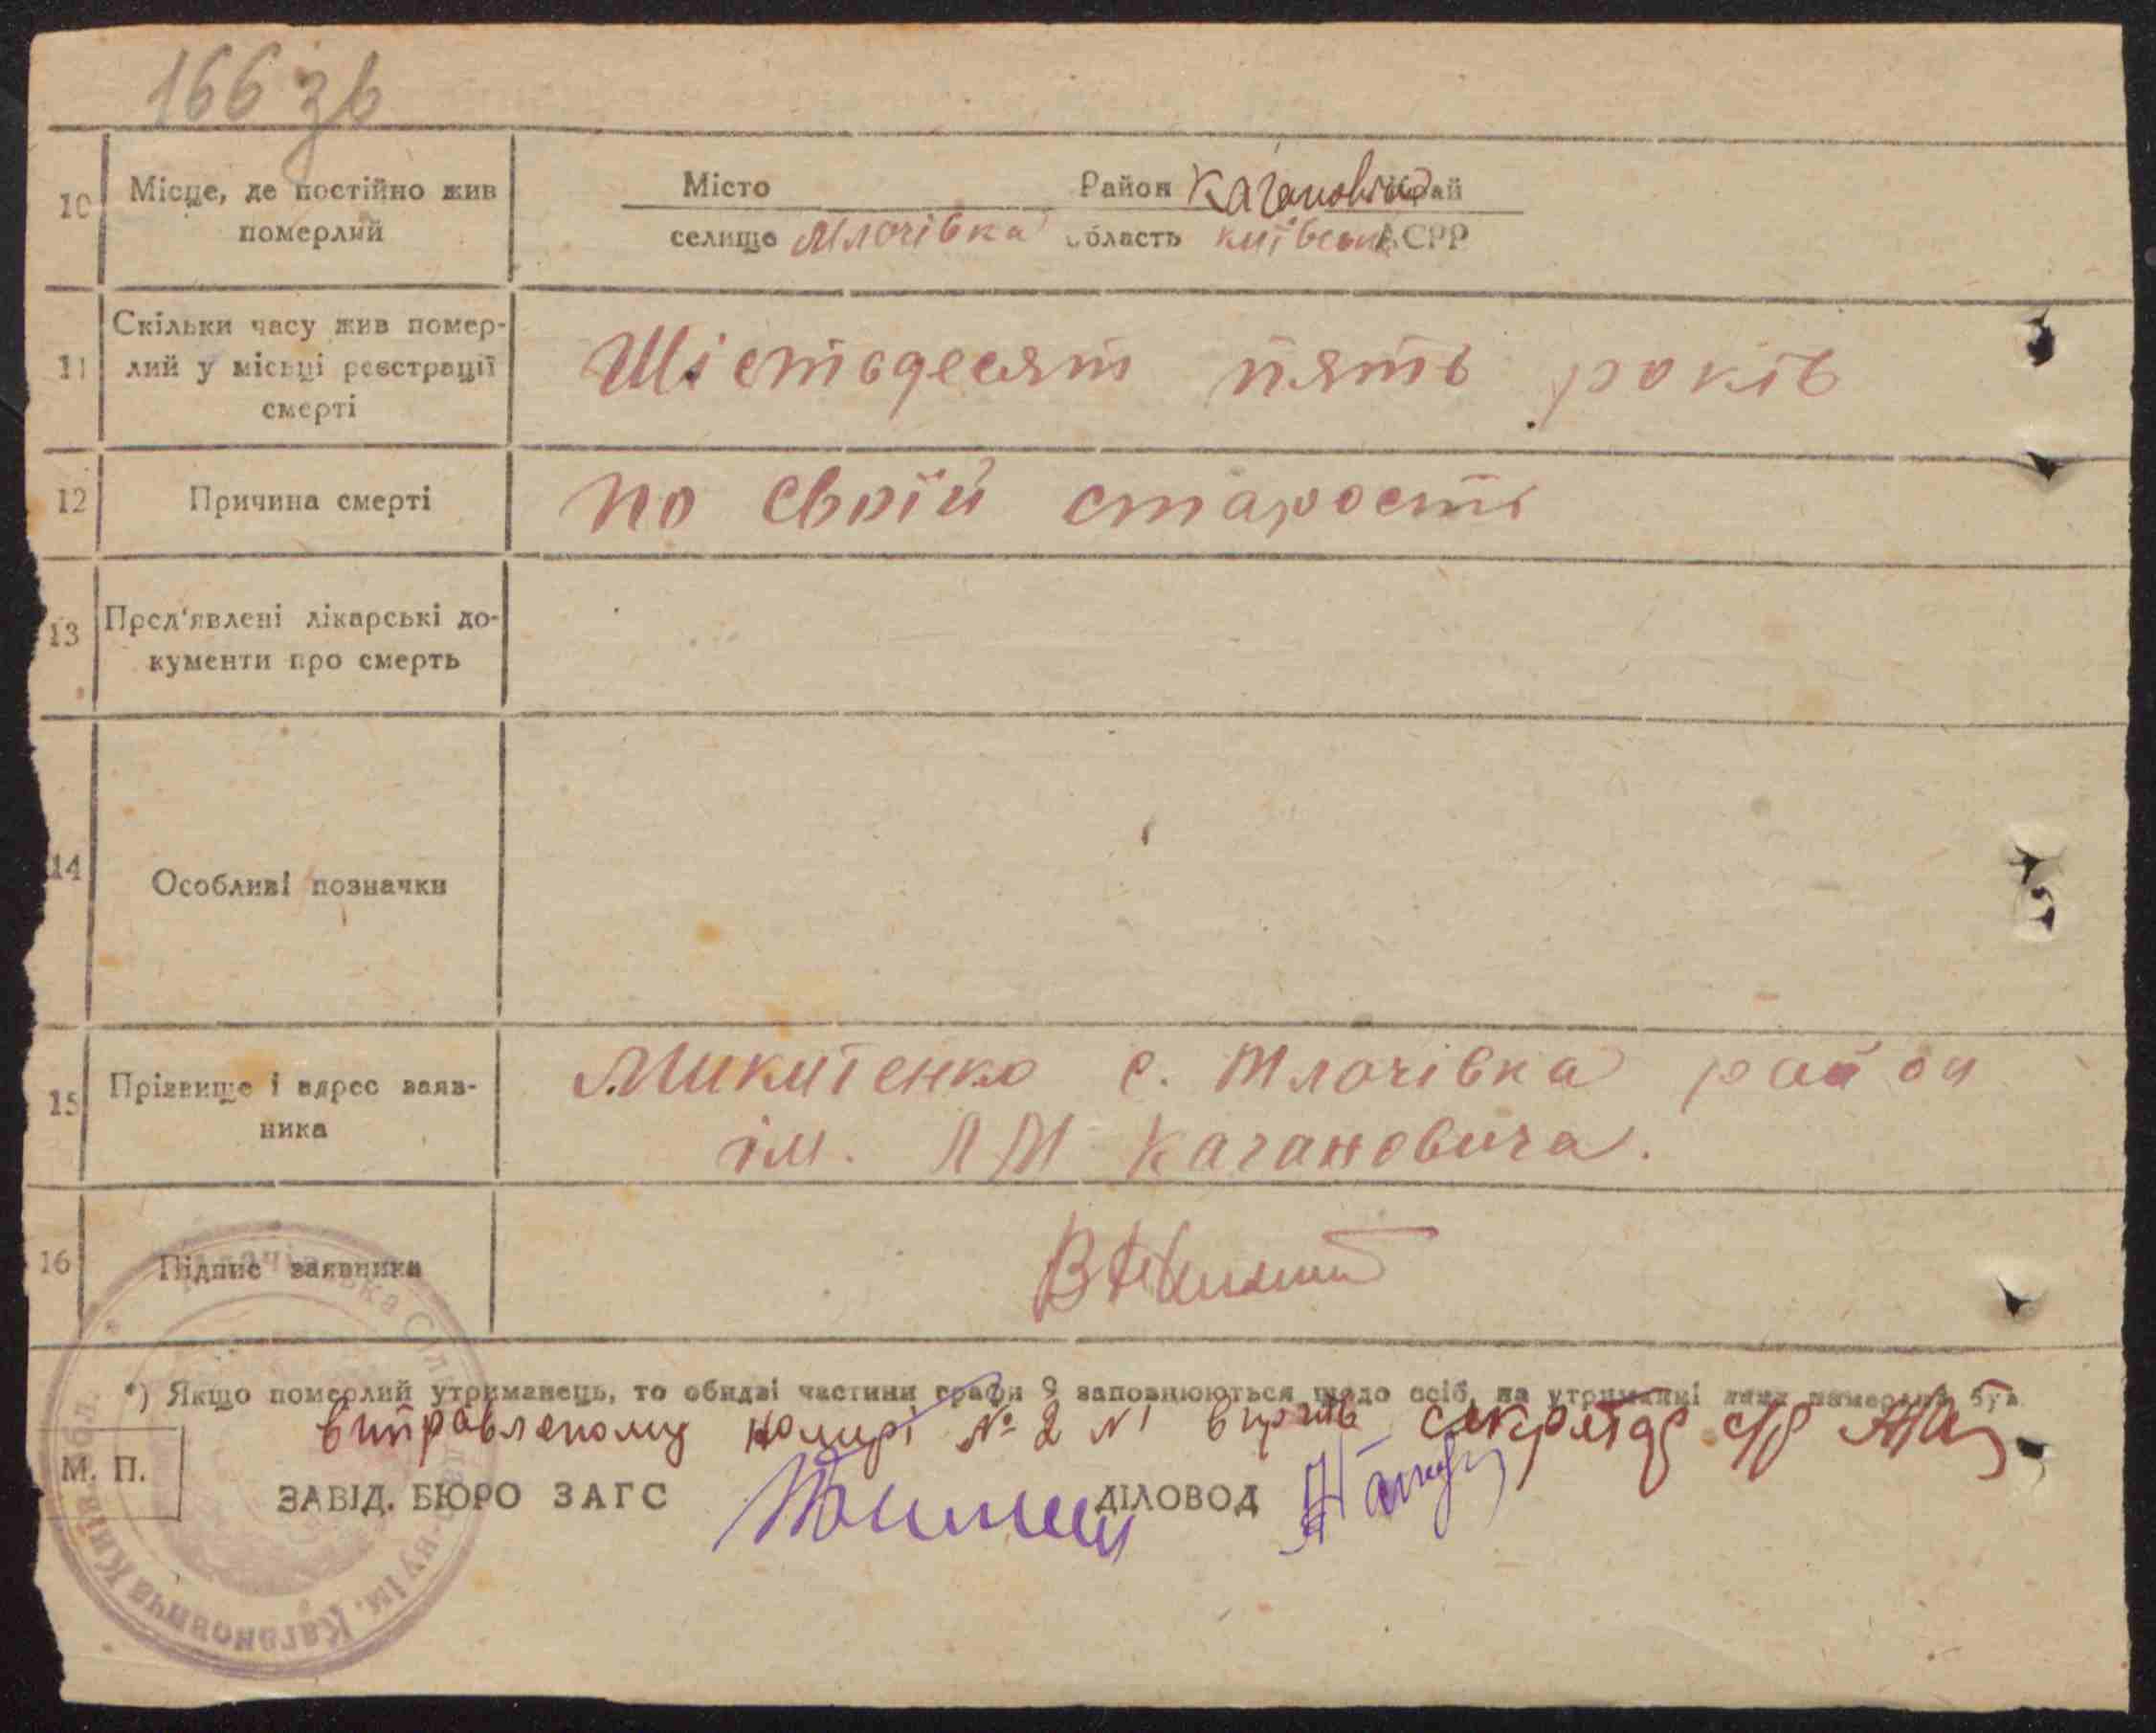 166 зв
10 Місце, де постійно жив померлий
Місто Район Каганович край
селище Млачівка область київська АСРР
11 Скільки часу жив померлий у місьці реєстрації смерті
Шістьдесят пять років
12 Причина смерті
по своїй старості
13 Пред'явлені лікарські документи про смерть
14 Особливі позначки
15 Прізвище і адрес заявника
Микитенко с. Млачівка район
ім. ЛМ Кагановича.
16 Підпис заявника
*) Якщо померлий утриманець, то обидві частини графи 9 заповнюються щодо осіб, на утриманні яких померлий був
виправленому № 2 секретар с/р
М. П.
ЗАВІД. БЮРО ЗАГС ДІЛОВОД
ім. Кагановича Київ. обл.